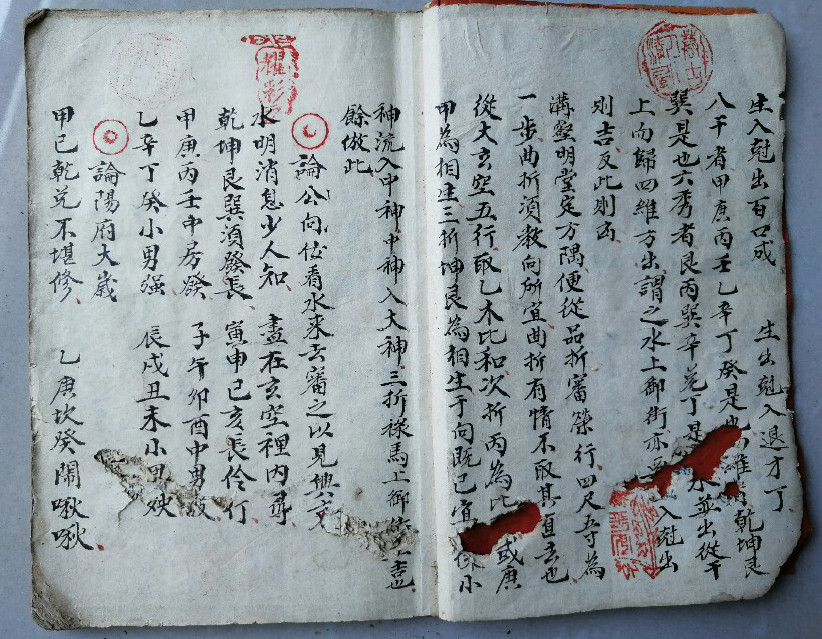 生入尅出百口成　生出尅入退才丁
八干者甲庚丙壬乙辛丁癸是也 乾坤艮
巽是也六秀者艮丙巽辛兌丁是 水並出從干
上向歸四維方出謂之水上御街亦 入尅出
則吉反此則凶
溝壑明堂定方隅便從品折審築行四尺五寸為
一步曲折須教向所宜曲折有情不取其直去也
從大玄空五行取乙木比和次折丙為比 或庚
甲為相生三折坤艮為相生于向既已宜 小
神流入中神中神入大神三折祿馬上御街
餘倣此
論公向位看水來去審之以見興
水明消息少人知　盡在玄空裡內尋
乾坤艮巽須發長　寅申巳亥長伶仃
甲庚丙壬中房發　子午卯酉中男
乙辛丁癸小男强　辰戌丑未小男殃
論陽府大歲
甲己乾兌不堪修　乙庚坎癸鬧啾啾
耀彩